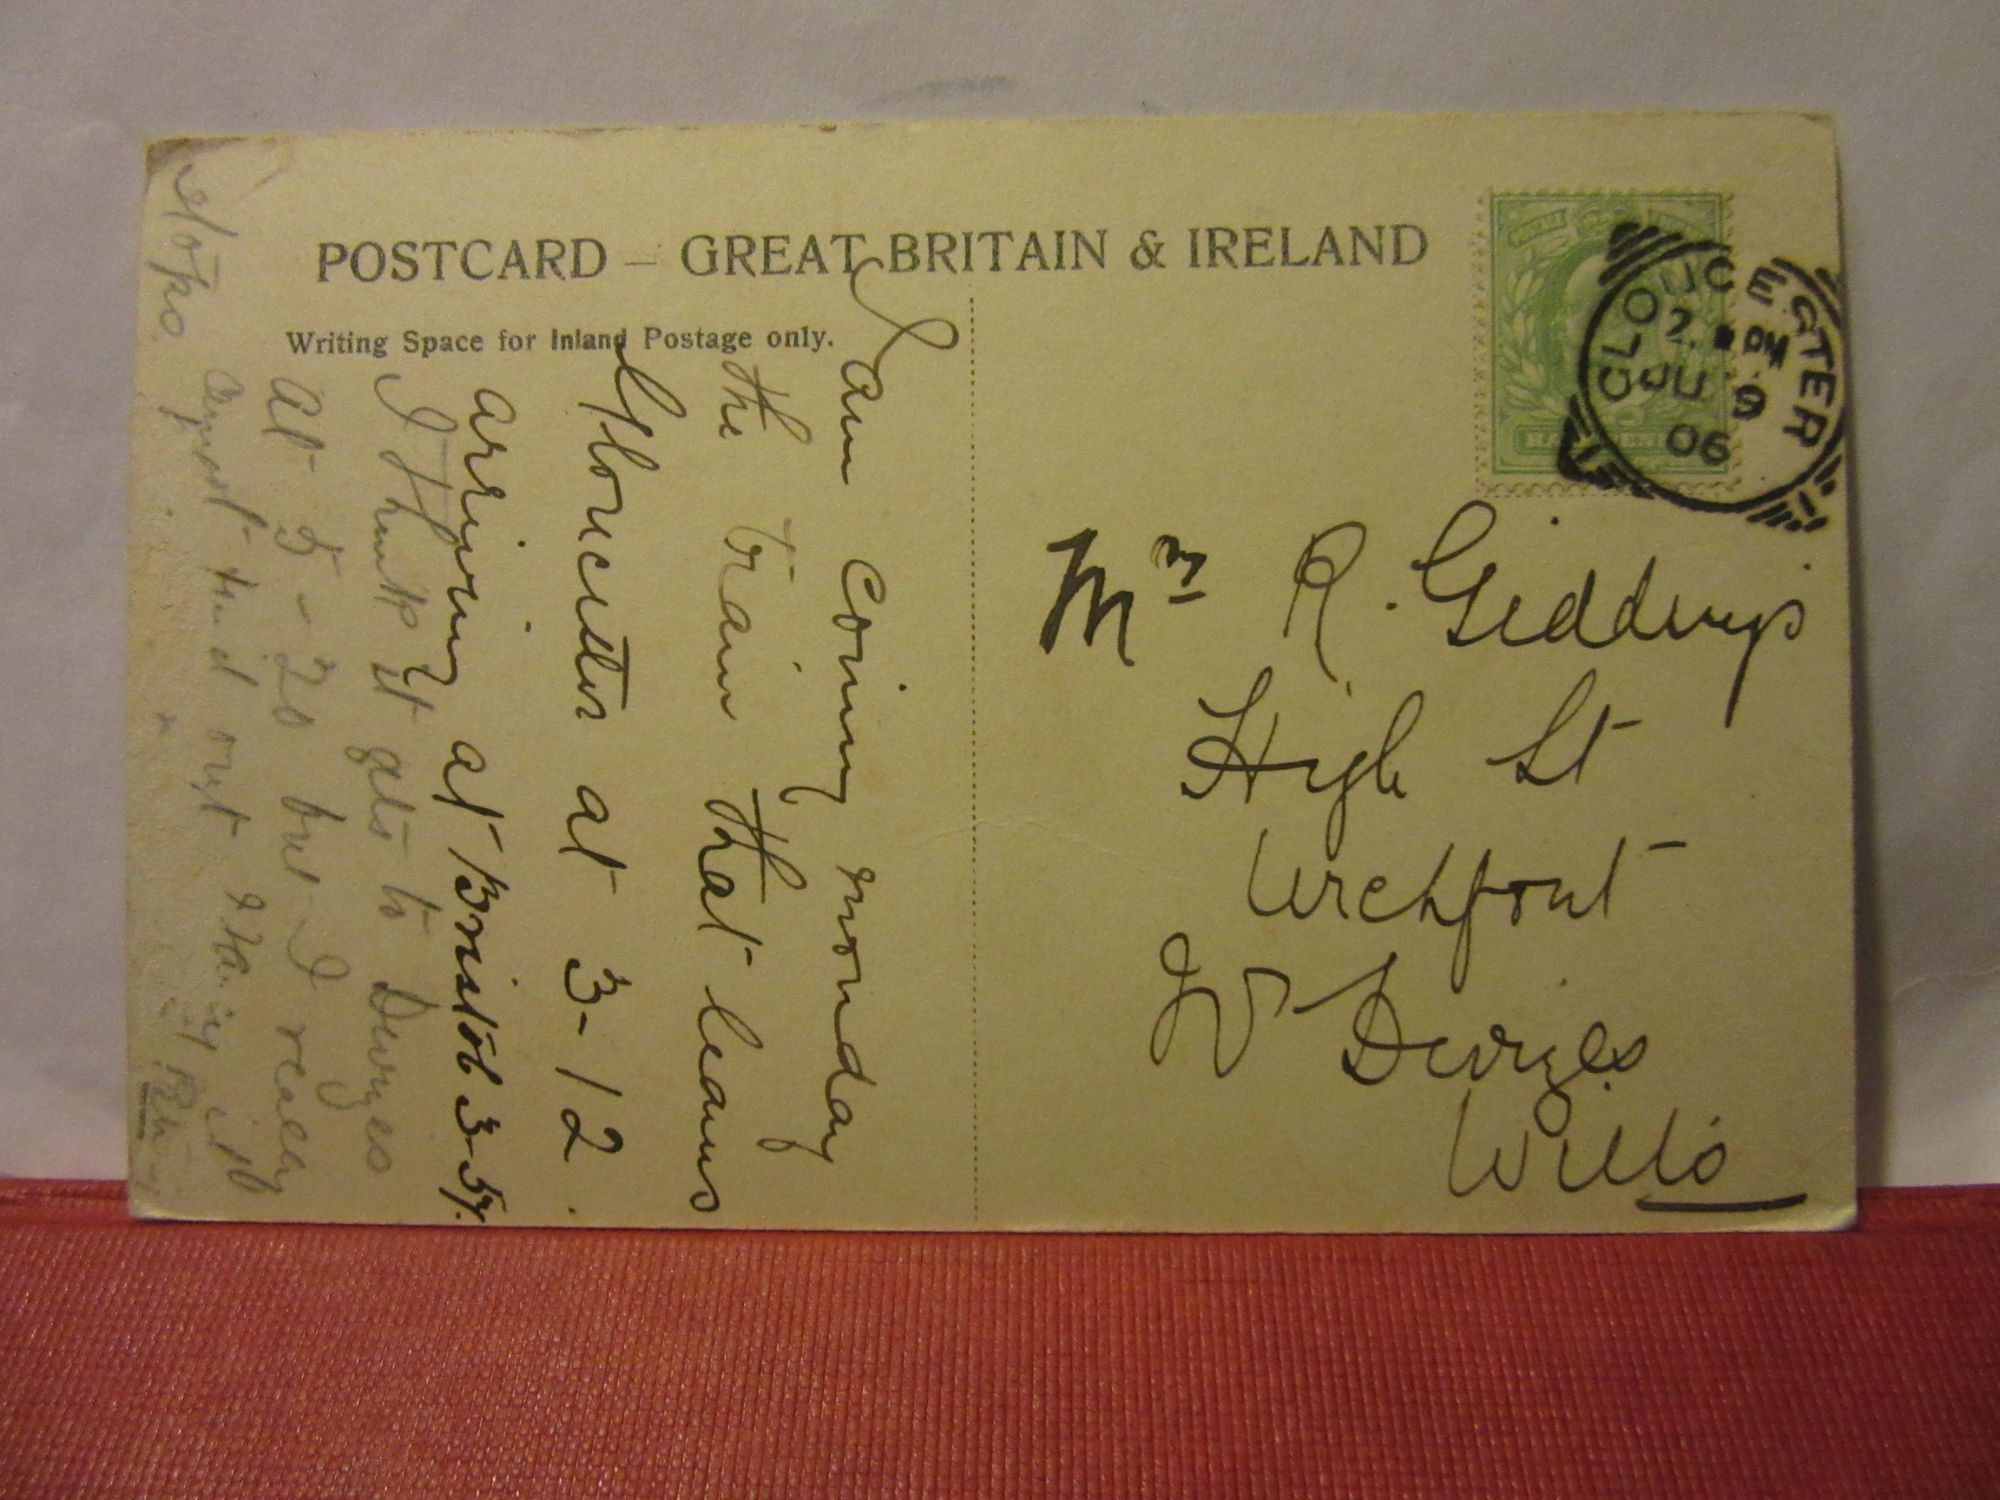 POSTCARD – GREAT BRITAIN & IRELAND
Writing Space for Inland Postage only.
I am Coming Monday
the train that leaves
Gloucester at 3-12.
arriving at Bristol 3-57.
I think it gets to Devizes
at 5-20 but I really
find out
GLOUCESTER
2. PM
JU 9
06
HALFPENNY
Mrs R. Giddings
High St
Urchfont
Nr Devizes
Wilts